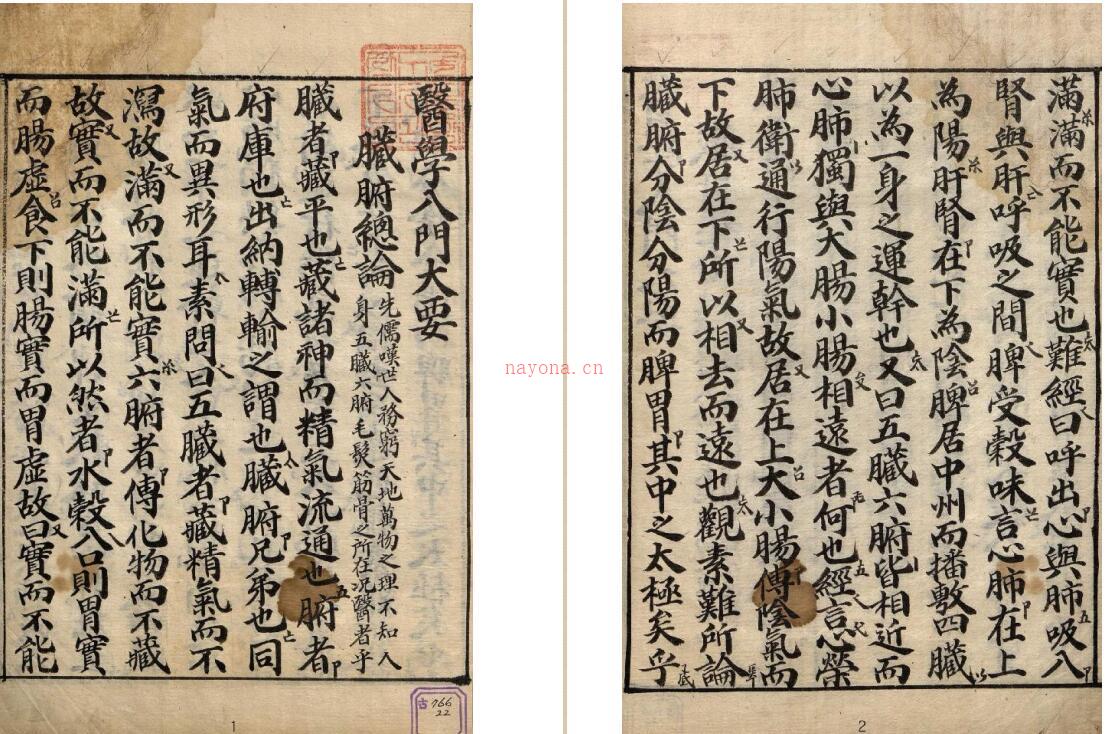 醫學八門大要
臟腑總論
先儒嘆世人務窮天地萬物之理不知人
身五臟六腑毛髮筋骨之所在況醫者乎
臟者藏平也藏諸神而精氣流通也腑者
府庫也出納轉輸之謂也臟腑兄弟也同
氣而異形耳素問曰五臟者藏精氣而不
瀉故滿而不能實六腑者傳化物而不藏
故實而不能滿所以然者水穀入口則胃實
而腸虛食下則腸實而胃虛故曰實而不能
古 766
22
1
nayona.cn
滿滿而不能實也難經曰呼出心與肺吸入
腎與肝呼吸之間脾受穀味言心肺在上
為陽肝腎在下為陰脾居中州而播敷四臟
以為一身之運幹也又曰五臟六腑皆相近而
心肺獨與大腸小腸相遠者何也經言心榮
肺衛通行陽氣故居在上大小腸傳陰氣而
下故居在下所以相去而遠也觀素難所論
臟腑分陰分陽而脾胃其中之太極矣乎
2